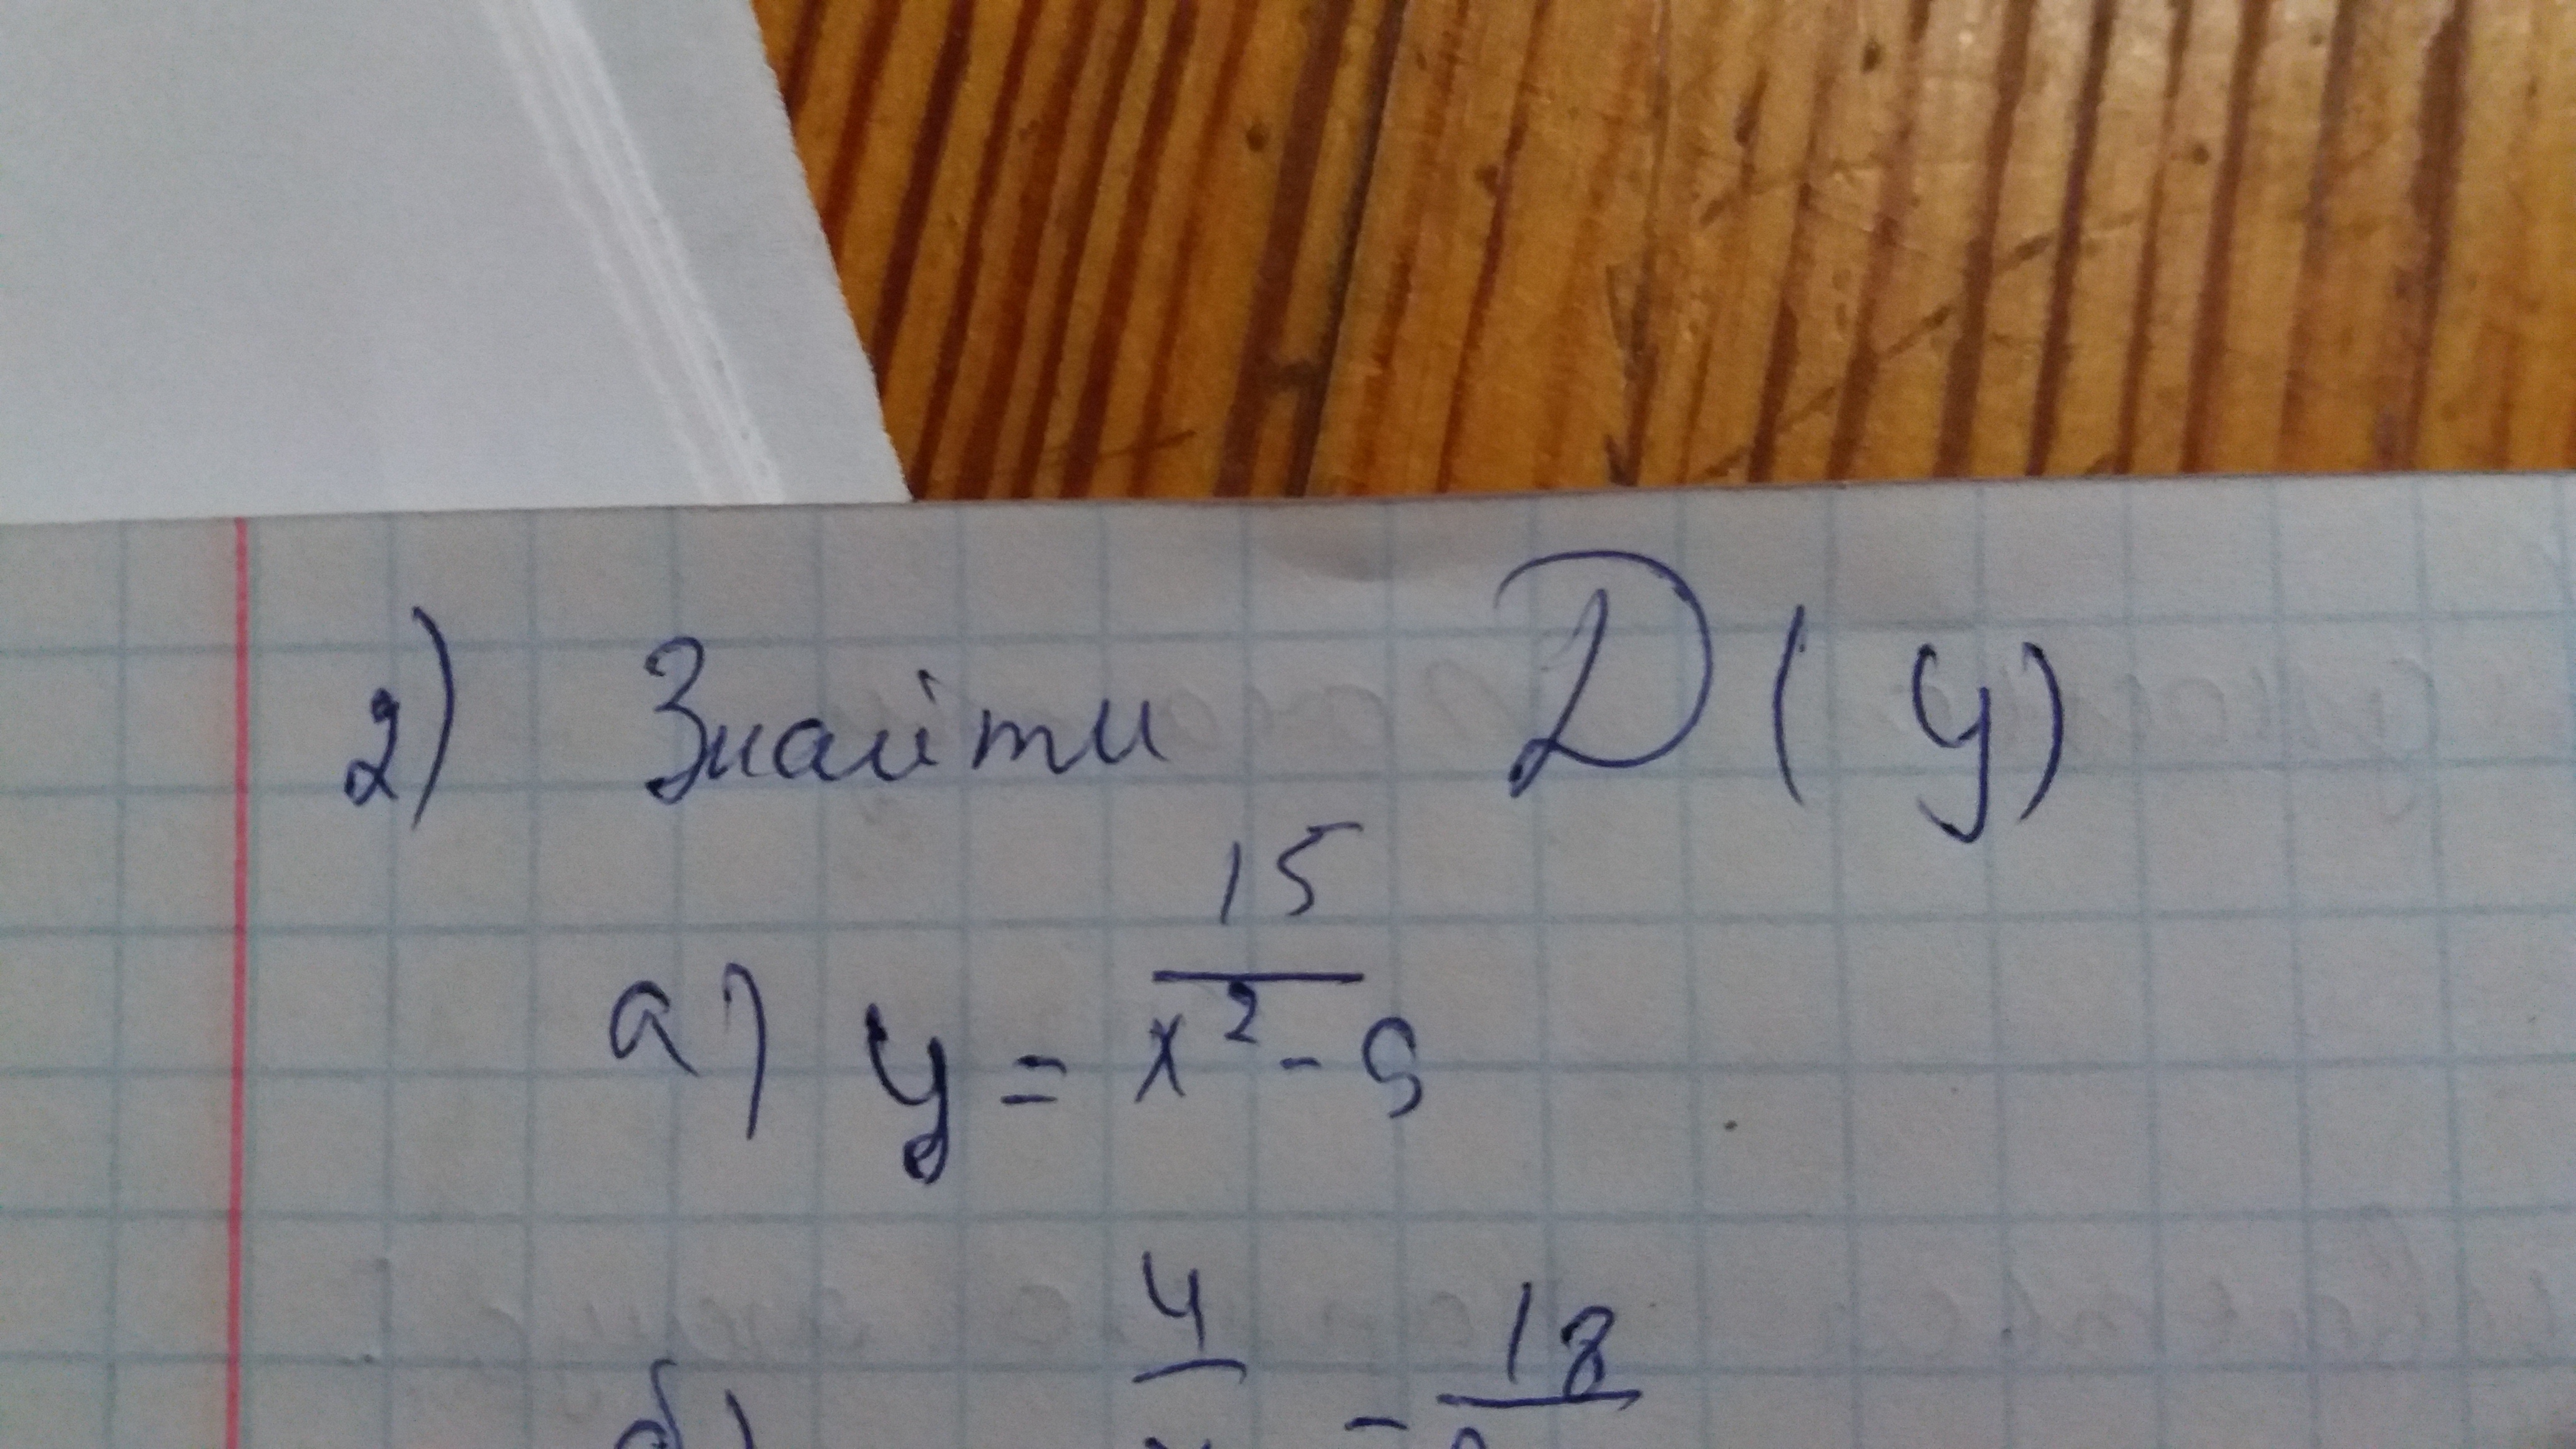 2) Знайти D(y)
а) y = 15/(x² - 9)
б) 4/ - 18/